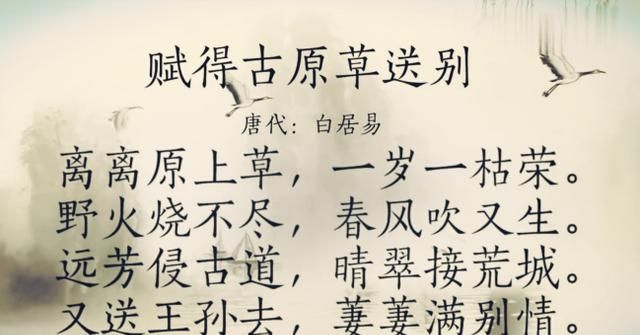 赋得古原草送别
唐代：白居易
离离原上草，一岁一枯荣。
野火烧不尽，春风吹又生。
远芳侵古道，晴翠接荒城。
又送王孙去，萋萋满别情。